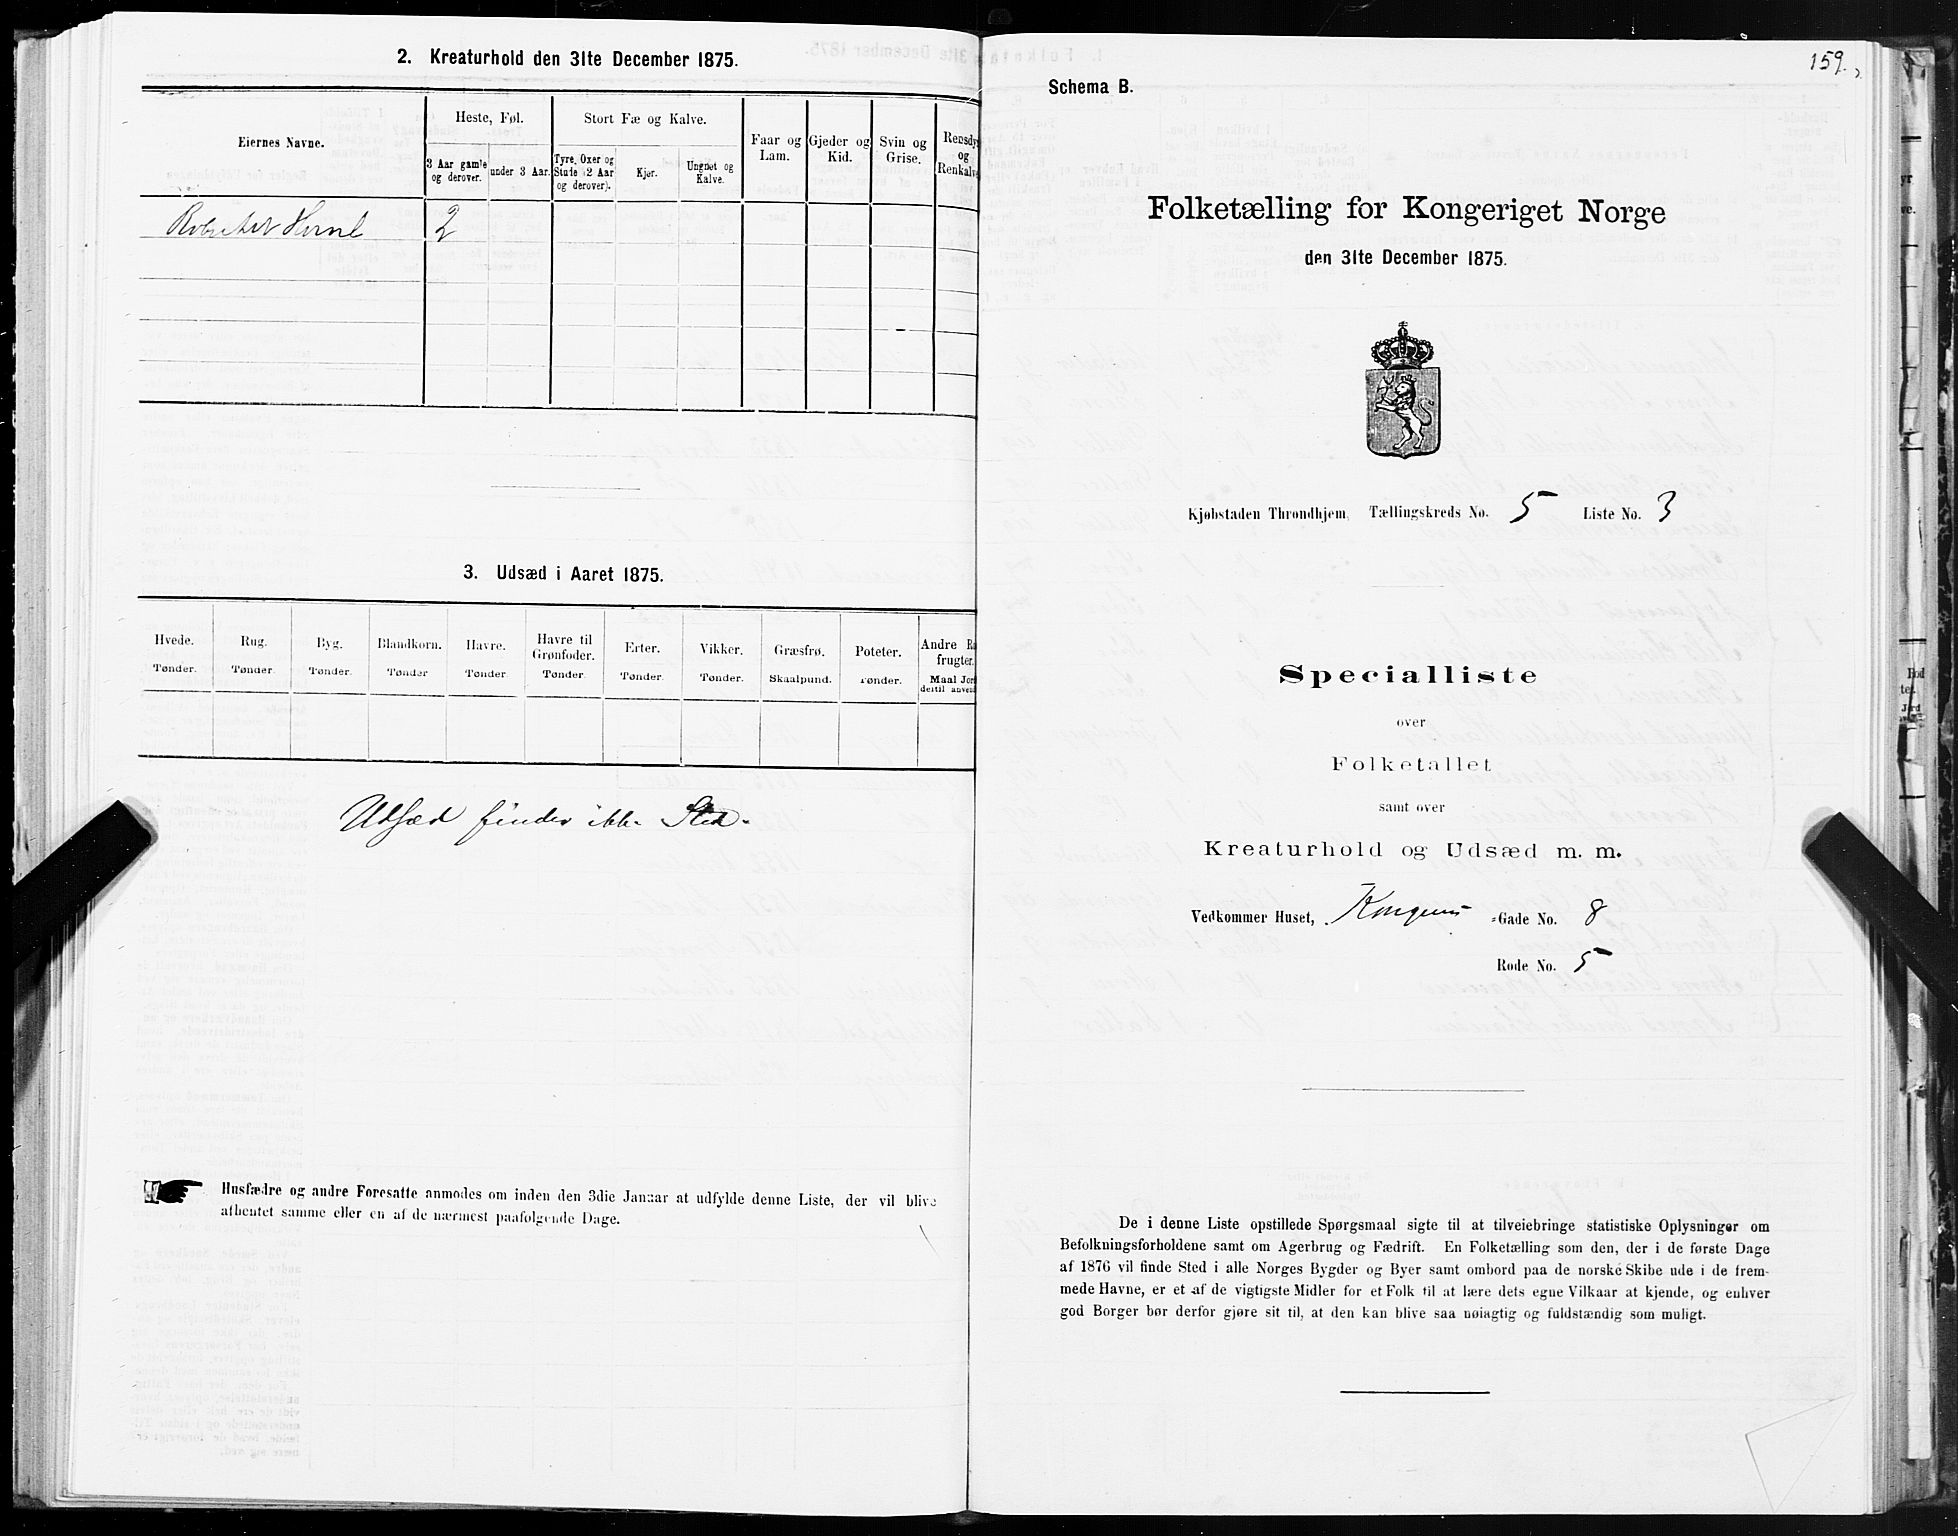 2. Kreaturhold den 31te December 1875.
Eiernes Navne.
Heste, Føl.
Stort Fæ og Kalve.
Faar og Lam.
Gjeder og Kid.
Svin og Grise.
Rensdy
og
Renkalve
3 Aar gamle og derover.
under 3 Aar.
Tyre, Oxer og Stude (2 Aar og derover).
Kjør.
Ungnøt og Kalve.
2
3. Udsæd i Aaret 1875.
Hvede.
Rug.
Byg.
Blandkorn.
Havre.
Havre til Grønfoder.
Erter.
Vikker.
Græsfrø.
Poteter.
Andre Ro
frugter.
Tønder.
Tønder.
Tønder.
Tønder
Tønder.
Tønder.
Tønder.
Tønder.
Skaalpund.
Tønder.
Maal Jord
dertil anvend
Udsæd finder ikke Sted.
Husfædre og andre Foresatte anmodes om inden den 3die Januar at udfylde denne Liste, der vil blive
afhentet samme eller en af de nærmest paafølgende Dage.
159.
Schema B.
Folketælling for Kongeriget Norge
den 31te December 1875.
Kjøbstaden Throndhjem, Tællingskreds No. 5 Liste No. 3
Specialliste
over
Folketallet
samt over
Kreaturhold og Udsæd m. m.
Vedkommer Huset, Kongens -Gade No. 8
Rode No. 5
De i denne Liste opstillede Spørgsmaal sigte til at tilveiebringe statistiske Oplysninger om
Befolkningsforholdene samt om Agerbrug og Fædrift. En Folketælling som den, der i de første Dage
af 1876 vil finde Sted i alle Norges Bygder og Byer samt ombord paa de norske Skibe ude i de frem-
mede Havne, er et af de vigtigste Midler for et Folk til at lære dets egne Vilkaar at kjende, og enhver
god Borger bør derfor gjøre sit til, at den kan blive saa nøiagtig og fuldstændig som muligt.